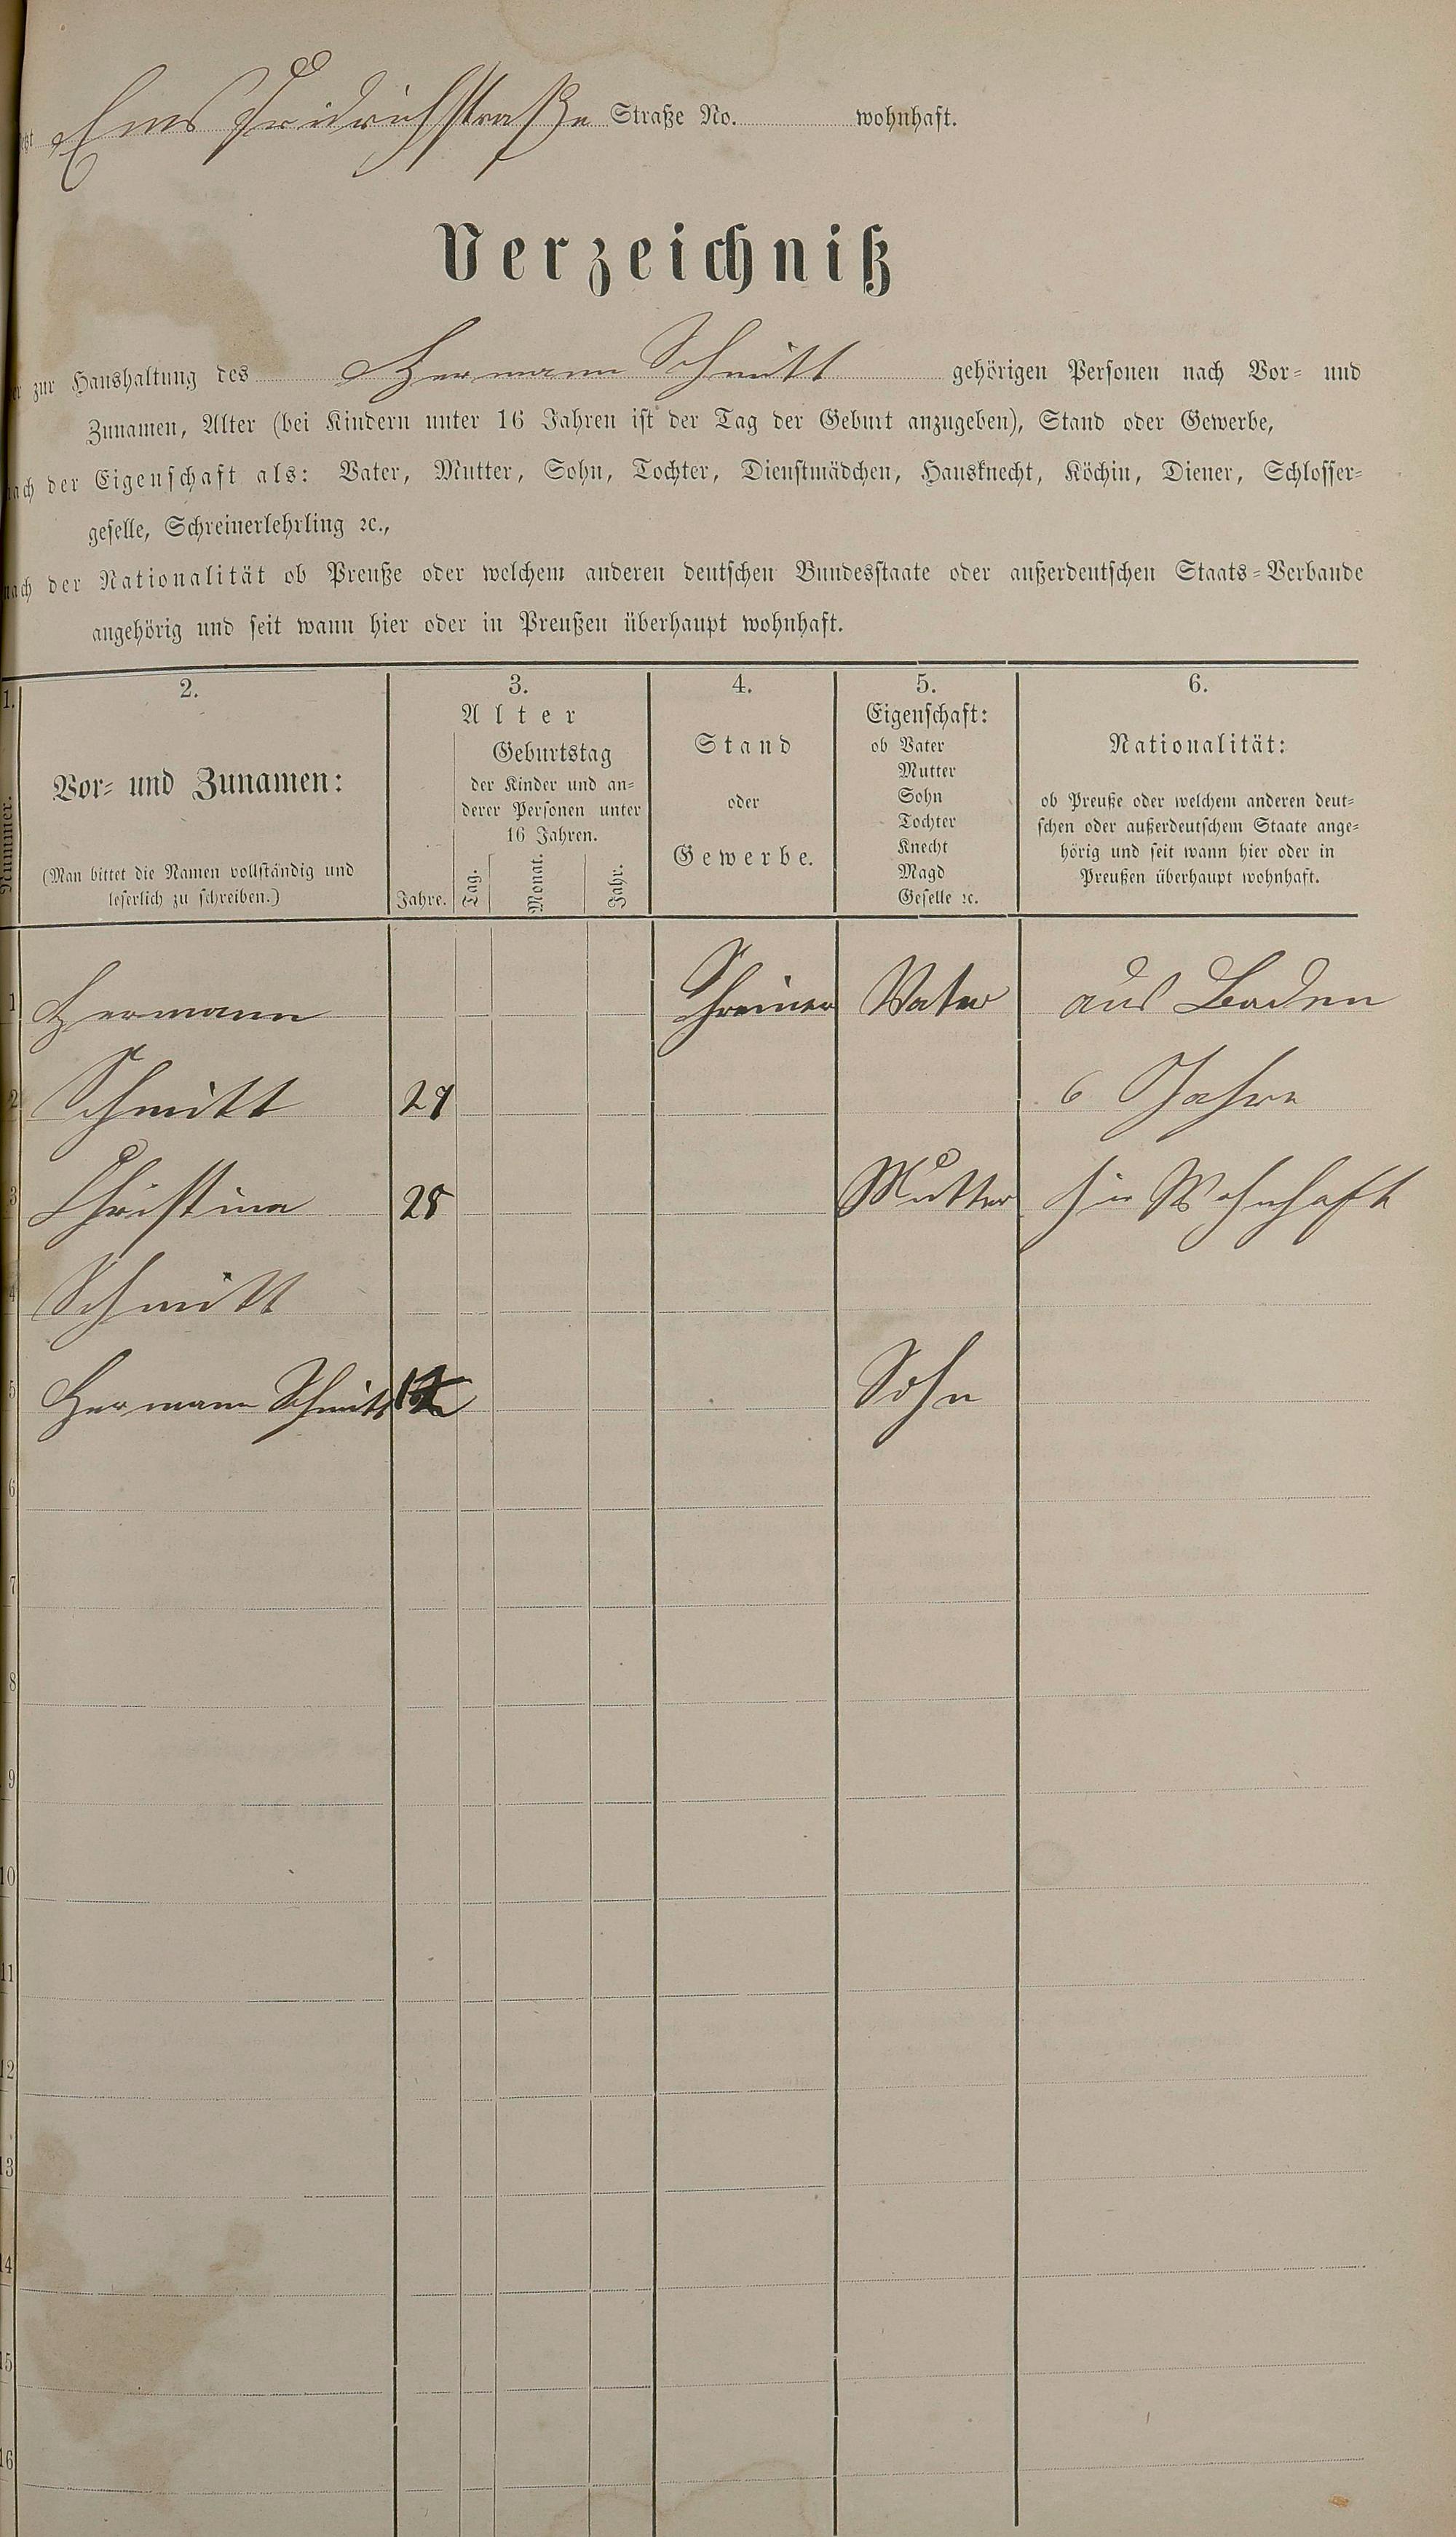 Ems Fridrichstraße Straße No. wohnhaft.
Verzeichniß
zur Haushaltung des Hermann Schmitt gehörigen Personen nach Vor- und
Zunamen, Alter (bei Kindern unter 16 Jahren ist der Tag der Geburt anzugeben), Stand oder Gewerbe,
nach der Eigenschaft als: Vater, Mutter, Sohn, Tochter, Dienstmädchen, Hausknecht, Köchin, Diener, Schlosser-
geselle, Schreinerlehrling ꝛc.,
nach der Nationalität ob Preuße oder welchem anderen deutschen Bundesstaate oder außerdeutschen Staats-Verbande
angehörig und seit wann hier oder in Preußen überhaupt wohnhaft.
1. 2. 3. 4. 5. 6.
Nummer.
Vor- und Zunamen:
(Man bittet die Namen vollständig und
leserlich zu schreiben.)
Alter
Jahre.
Geburtstag
der Kinder und an-
derer Personen unter
16 Jahren.
Tag. Monat. Jahr.
Stand
oder
Gewerbe.
Eigenschaft:
ob Vater
Mutter
Sohn
Tochter
Knecht
Magd
Geselle ꝛc.
Nationalität:
ob Preuße oder welchem anderen deut-
schen oder außerdeutschem Staate ange-
hörig und seit wann hier oder in
Preußen überhaupt wohnhaft.
1 Hermann Schreiner Vater aus Baden
2 Schmitt 29 6 Jahre
3 Christina 28 Mutter hir Wohnhaft
4 Schmitt
5 Hermann Schmitt Sohn
6
7
8
9
10
11
12
13
14
15
16